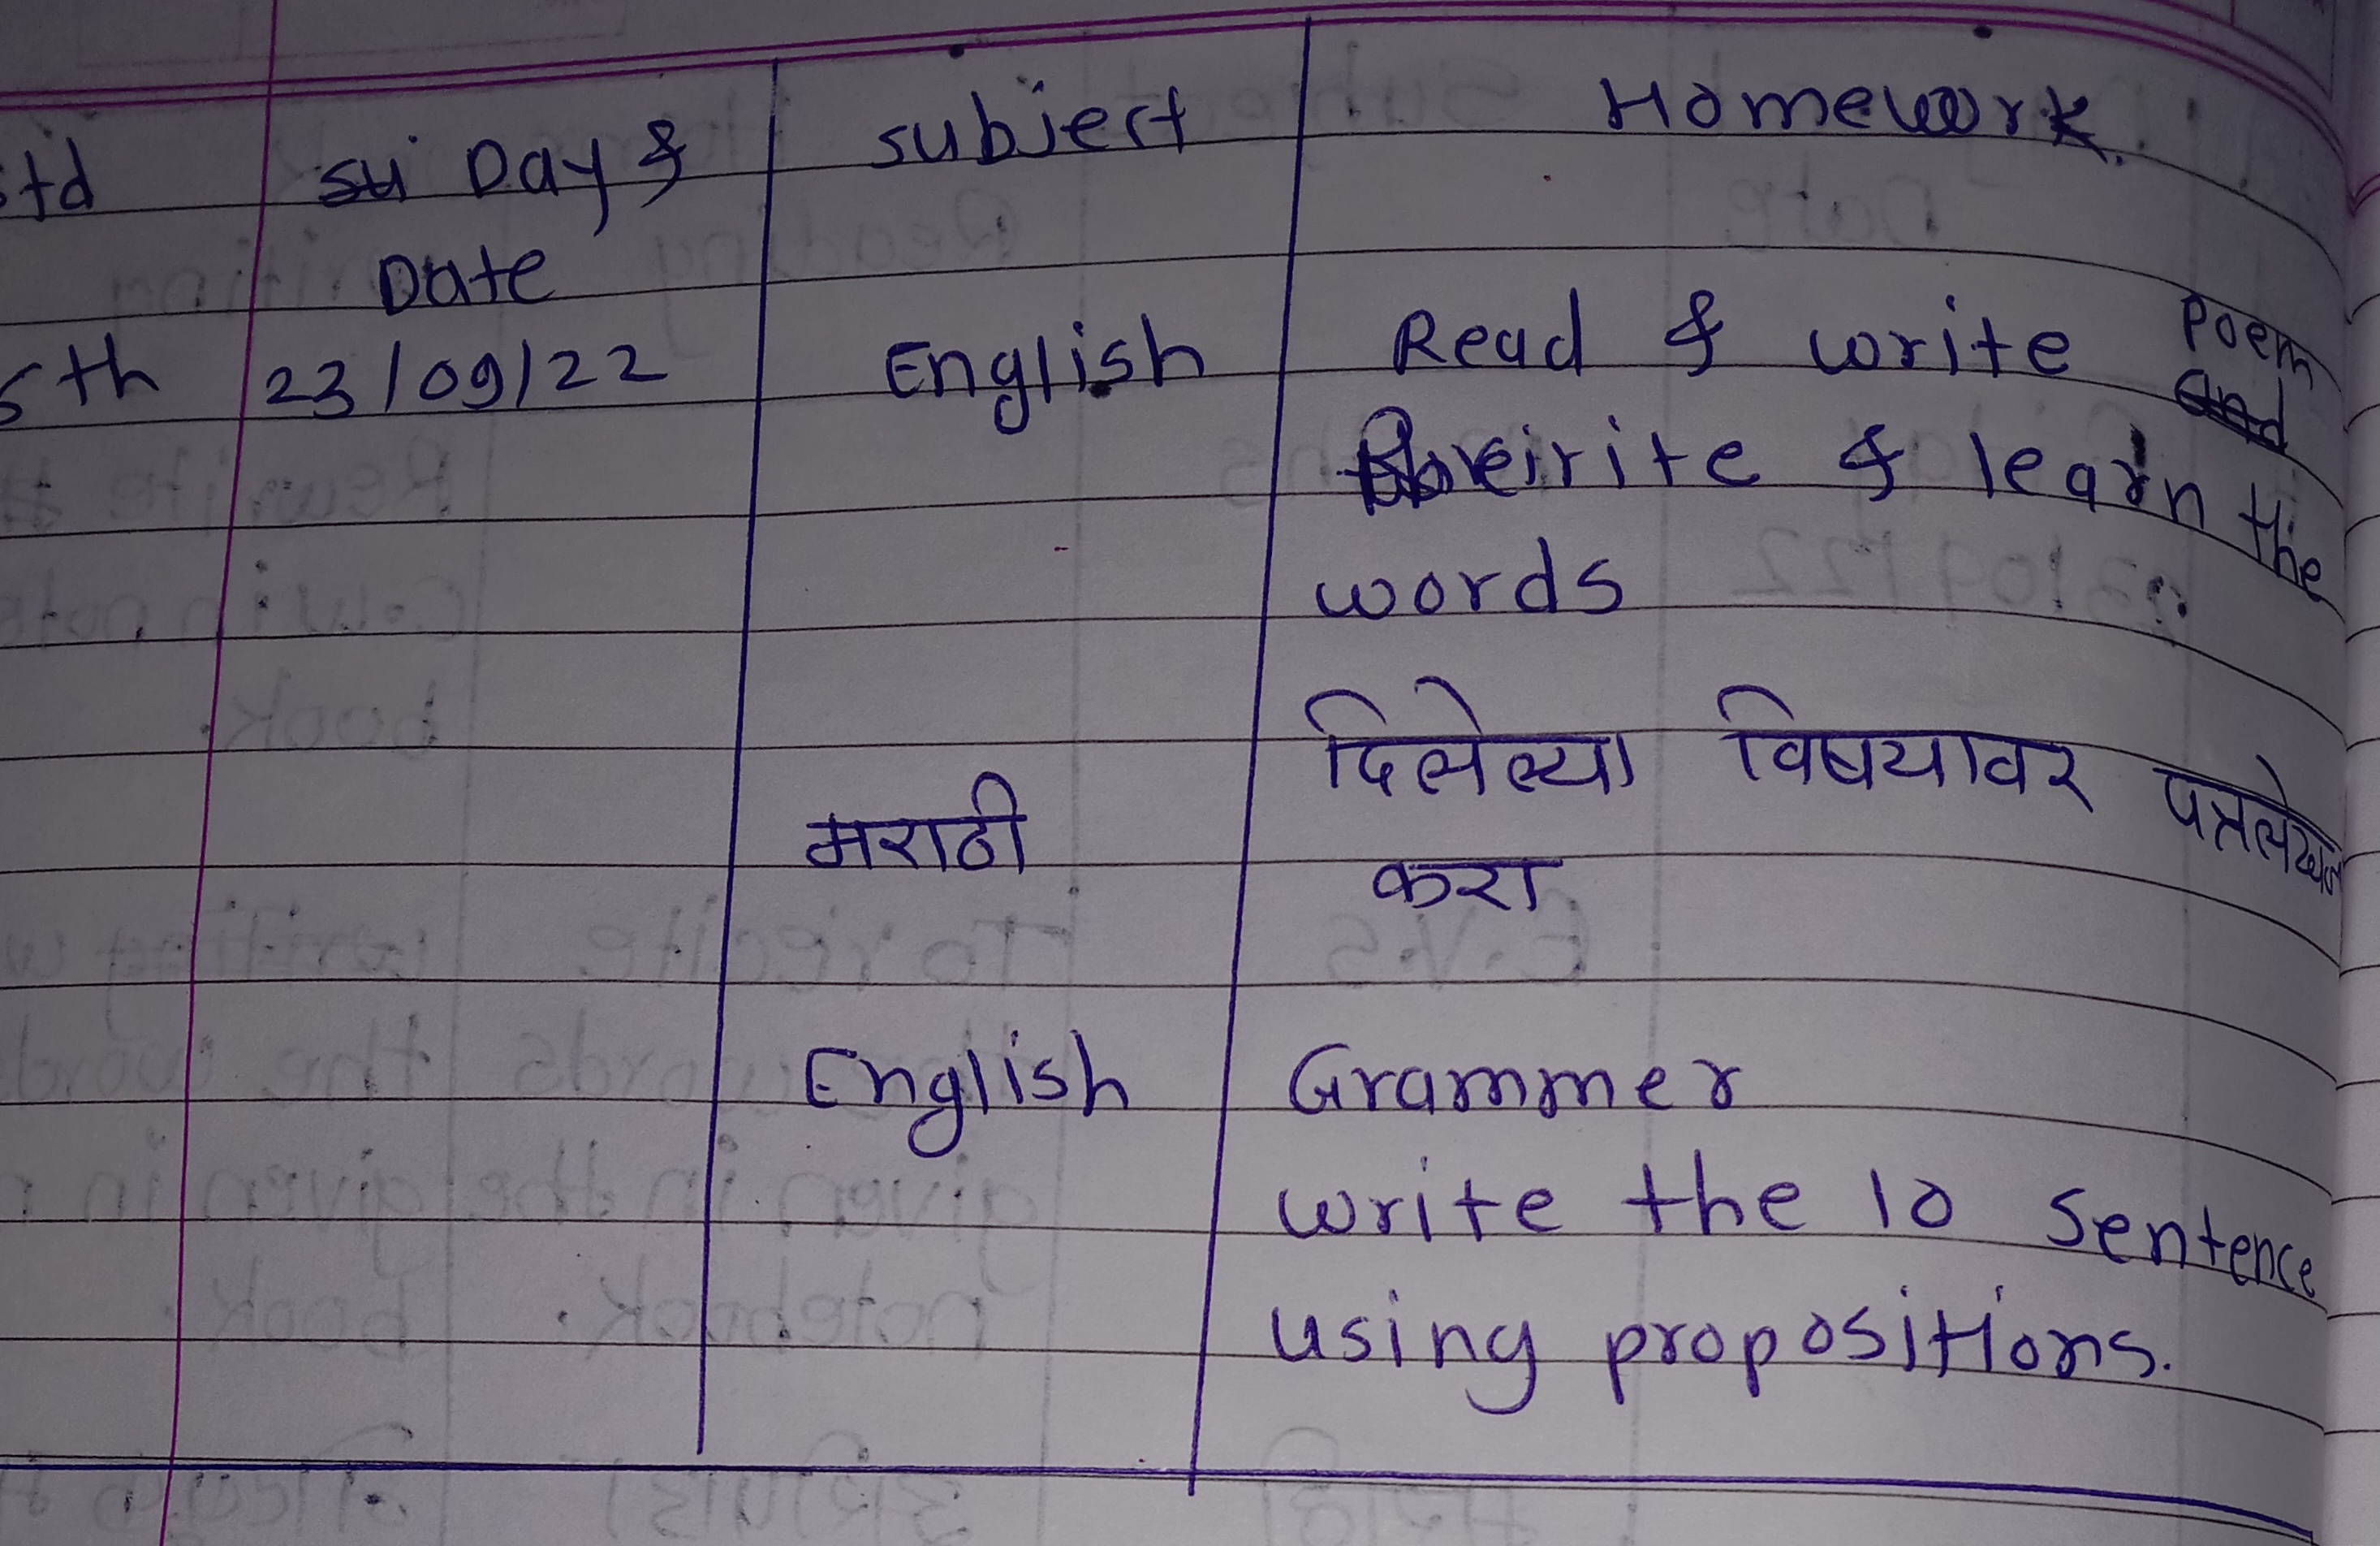 std Day & subject Homework.
Date
5th 23/09/22 English Read & write Poem
reirite & learn the
words
दिलेल्या विषयावर पत्रलेखन
मराठी करा
English Grammer
write the 10 sentence
using propositions.